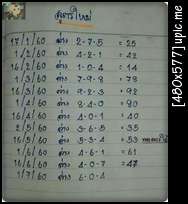 สูตรใหม่
17/1/60 ล่าง 2-7-5 = 25
1/2/60 ล่าง 4-2-1 = 42
16/2/60 ล่าง 1-0-4 = 14
1/3/60 ล่าง 7-9-8 = 78
16/3/60 ล่าง 9-2-3 = 92
1/4/60 ล่าง 8-4-0 = 80
16/4/60 ล่าง 4-0-1 = 40
2/5/60 ล่าง 3-6-5 = 35
16/5/60 ล่าง 5-3-4 = 53
1/6/60 ล่าง 4-6-1 = 61
16/6/60 ล่าง 4-0-7 = 47
1/7/60 ล่าง 6-0-4
[480x577] upic.me